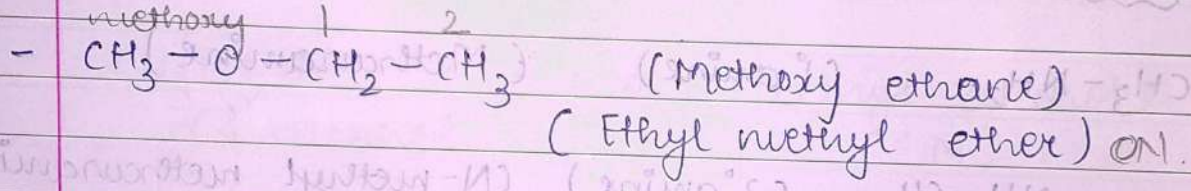 methoxy 1 2
- CH₃ - O - CH₂ - CH₃ (Methoxy ethane)
(Ethyl methyl ether) ON.